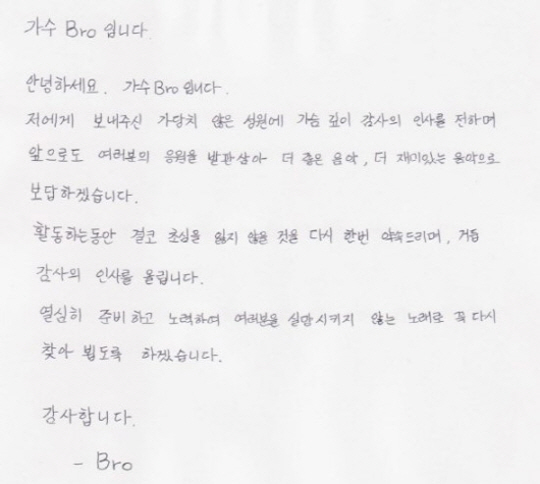 가수 Bro 입니다.
안녕하세요. 가수 Bro 입니다.
저에게 보내주신 가당치 않은 성원에 가슴 깊이 감사의 인사를 전하며
앞으로도 여러분의 응원을 발판삼아 더 좋은 음악, 더 재미있는 음악으로
보답하겠습니다.
활동하는동안 결코 초심을 잃지 않을 것을 다시 한번 약속드리며, 거듭
감사의 인사를 올립니다.
열심히 준비하고 노력하여 여러분을 실망시키지 않는 노래로 꼭 다시
찾아 뵙도록 하겠습니다.
감사합니다.
- Bro